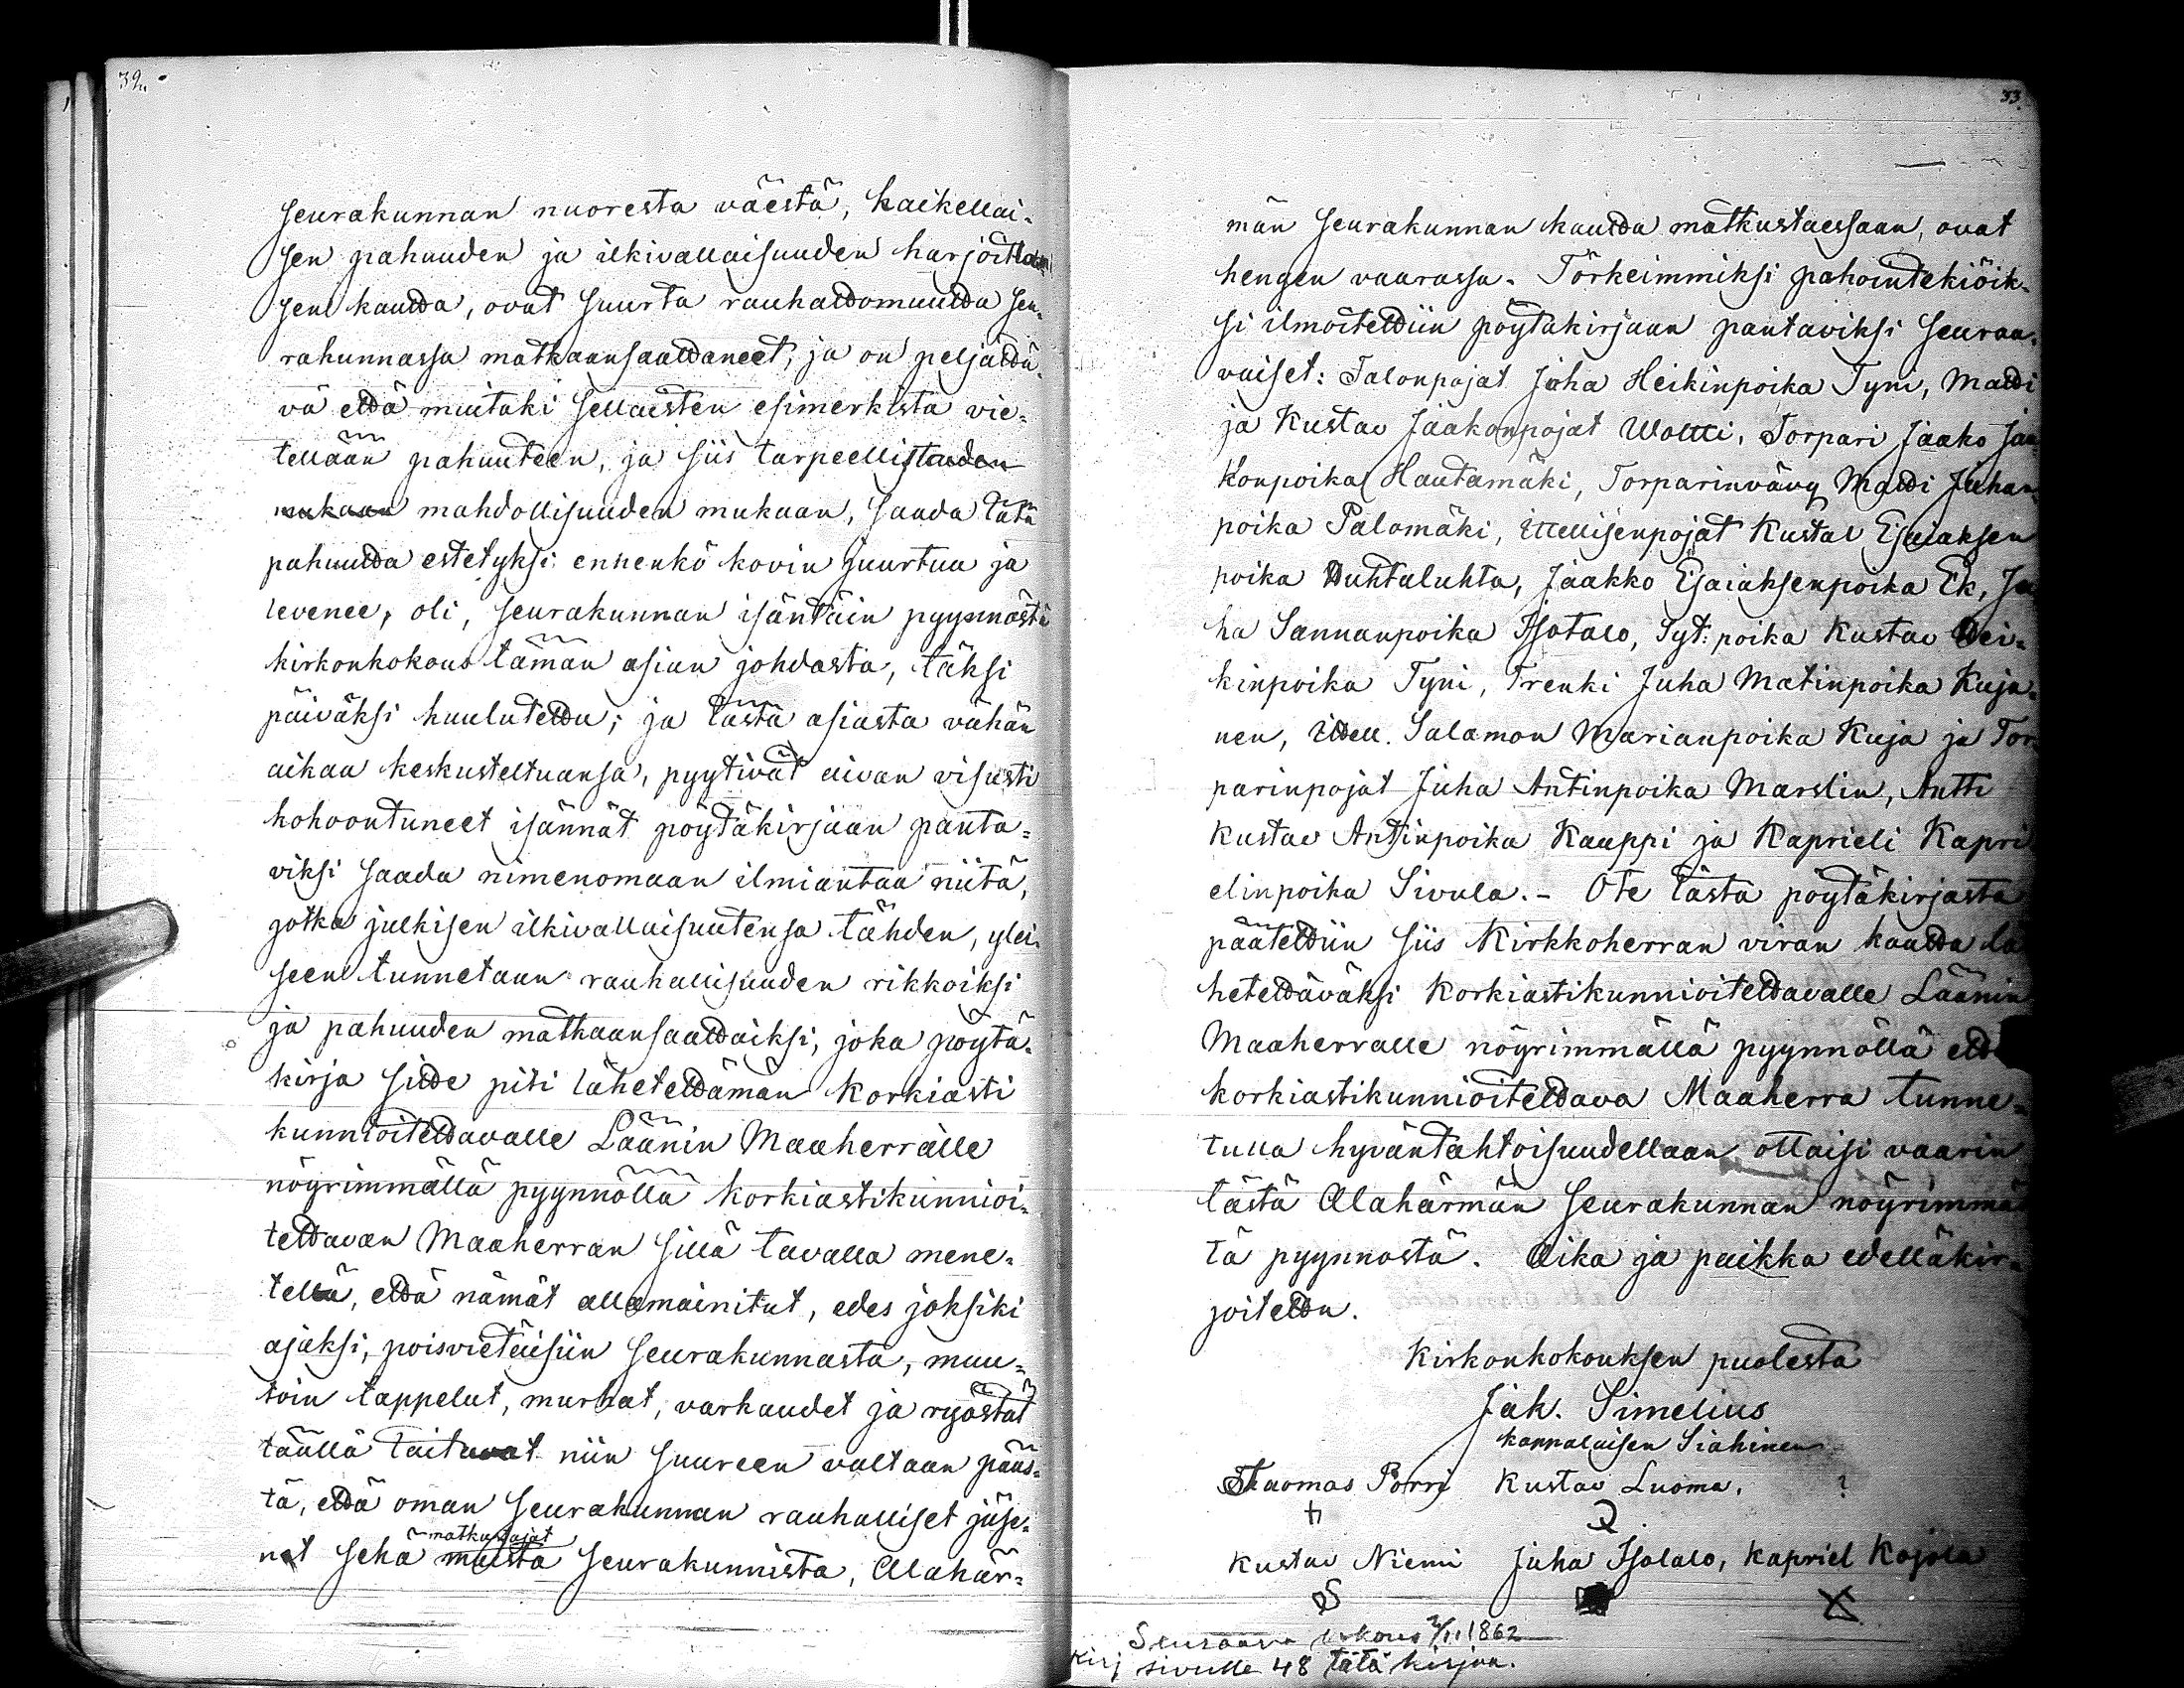 32.
seurakunnan nuoresta väestä, kaikellai-
sen pahuuden ja ilkivallaisuuden harjoitta-
sen kautta, ovat suurta rauhattomuutta seu-
rakunnassa matkaansaattaneet, ja on peljättä-
vä että muitaki sellaisten esimerkistä vie-
tellään pahuuteen, ja siis tarpeellistuden
mukaan mahdollisuuden mukaan, saada tätä
pahuutta estetyksi ennenkö kovin juurtuu ja
levenee, oli, seurakunnan isäntäin pyynnöstä
kirkonkokous tämän asian johdosta, täksi
päiväksi kuulutettu; ja tästä asiasta vähän
aikaa keskusteltuansa, pyytivät aivan visusti
kokoontuneet isännät pöytäkirjaan panta-
viksi saada nimenomaan ilmiantaa niitä,
jotka julkisen ilkivallaisuutensa tähden, ylei-
seen tunnetaan rauhallisuuden rikkoiksi
ja pahuuden matkaansaattaiksi, joka pöytä-
kirja sitte piti lähetettämän Korkiasti
kunnioitettavalle Läänin Maaherralle
nöyrimmällä pyynnöllä korkiastikunnioi-
tettavan Maaherran sillä tavalla mene-
tellä, että nämät allamainitut, edes joksiki
ajaksi, poisvietäisiin seurakunnasta, muu-
toin tappelut, murhat, varkaudet ja ryöstät
täällä taituvat niin suureen valtaan pääs-
tä, että oman seurakunnan rauhalliset jäse-
matkustajat
net sekä muista seurakunnista, Alahär-
33.
män seurakunnan kautta matkustaessaan, ovat
hengen vaarassa. Törkeimmiksi pahointekiöik-
si ilmoitettiin pöytäkirjaan pantaviksi seuraa-
vaiset: Talonpojat Juha Heikinpoika Tyni, Matti
ja Kustav Jaakonpojat Woltti, Torpari Jaako Jaa
konpoika Hautamäki, Torparinvävy Matti Juhan-
poika Palomäki, Itsellisenpojat Kustav Esaiaksen
poika Huhtaluhta, Jaakko Esaiaksenpoika Ek, Ju
ha Sannanpoika Isotalo, Syt: poika Kustav Hei-
kinpoika Tyni, Trenki Juha Matinpoika Kuja-
nen, Itsell. Salamon Marianpoika Kuja ja Tor-
parinpojat Juha Antinpoika Marslin, Antti
Kustav Antinpoika Kauppi ja Kaprieli Kapri
elinpoika Sivula. - Ote tästä pöytäkirjasta
päätettiin siis Kirkkoherran viran kautta lä
hetettäväksi Korkiastikunnioitettavalle Läänin
Maaherralle nöyrimmällä pyynnöllä että
korkiastikunnioitettava Maaherra tunne-
tulla hyväntahtoisuudellaan ottaisi vaarin
tästä Alahärmän seurakunnan nöyrimmä
tä pyynnöstä. Aika ja paikka edelläkir-
joitettu.
Kirkonkokouksen puolesta
Jak. Simelius
kappalaisen Siahinen
Thaomas Porri Kustav Luoma.
Kustav Niemi Juha Isotalo, Kapriel Kojola
Seuraava kokous 2/11 1862
Kirj sivulle 48 tätä kirjaa.